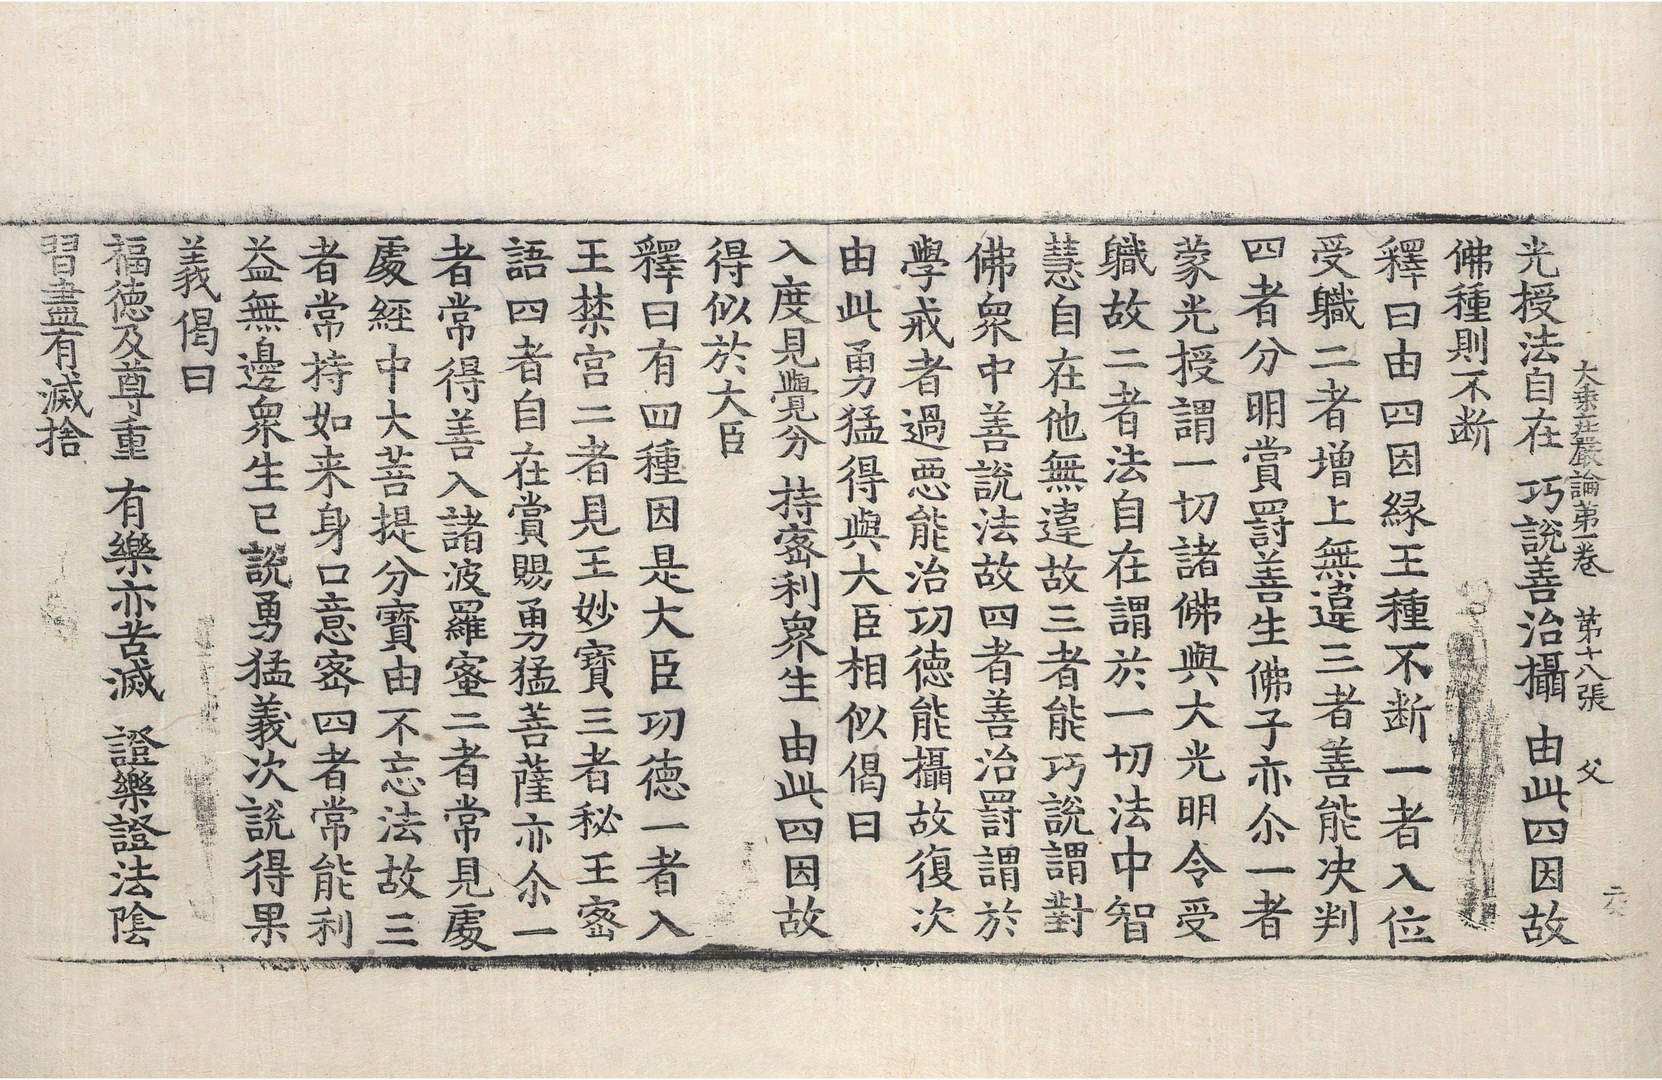 大乘莊嚴論第一卷 第十八張 父
光授法自在 巧說善治攝 由此四因故
佛種則不断
釋曰由四因緣王種不断一者入位
受職二者增上無違三者善能决判
四者分明賞罸善生佛子亦尒一者
蒙光授謂一切諸佛與大光明令受
職故二者法自在謂於一切法中智
慧自在他無違故三者能巧說謂對
佛衆中善說法故四者善治罸謂於
學戒者過惡能治功德能攝故復次
由此勇猛得與大臣相似偈曰
入度見覺分 持宻利衆生 由此四因故
得似於大臣
釋曰有四種因是大臣功德一者入
王禁宫二者見王妙寶三者秘王宻
語四者自在賞賜勇猛菩薩亦尒一
者常得善入諸波羅蜜二者常見處
處經中大菩提分寶由不忘法故三
者常持如来身口意宻四者常能利
益無邊衆生已說勇猛義次說得果
義偈曰
福德及尊重 有樂亦苦滅 證樂證法陰
習盡有滅捨